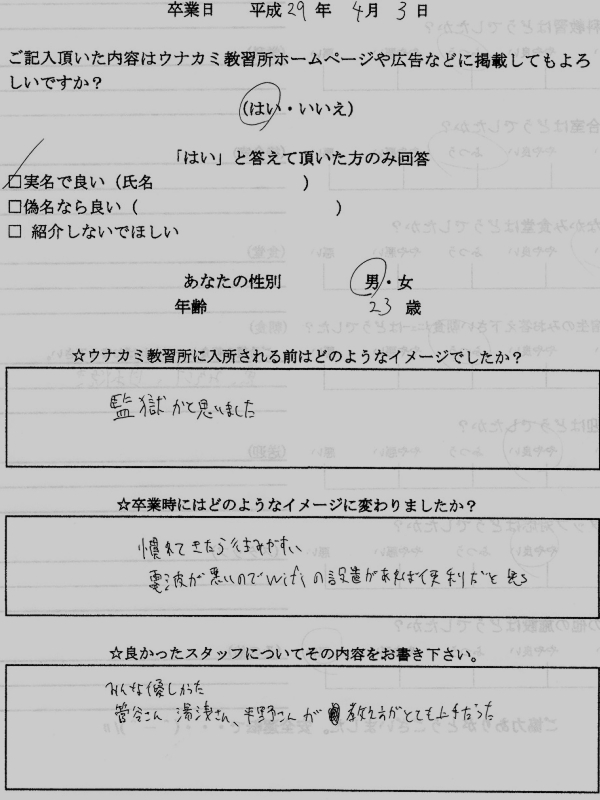 卒業日 平成29年 4月 3日
ご記入頂いた内容はウナカミ教習所ホームページや広告などに掲載してもよろ
しいですか?
(はい・いいえ)
「はい」と答えて頂いた方のみ回答
□実名で良い（氏名 ）
□偽名なら良い（ ）
□ 紹介しないでほしい
あなたの性別 男・女
年齢 23 歳
☆ウナカミ教習所に入所される前はどのようなイメージでしたか?
監獄かと思いました
☆卒業時にはどのようなイメージに変わりましたか?
慣れてきたら住みやすい
電波が悪いのでwifiの設置があれば便利だと思う
☆良かったスタッフについてその内容をお書き下さい。
みんな優しかった
菅谷さん 湯浅さん、平野さんが教え方がとても上手だった